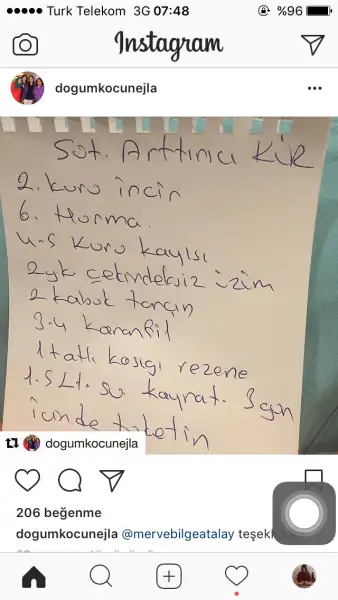 Turk Telekom 3G 07:48 %96
Instagram
dogumkocunejla
Süt. Arttırıcı KÜR
2. kuru incir
6. Hurma.
4-5 kuru kayısı
2yk çekirdeksiz üzüm
2 kabuk tarçın
3-4 karanfil
1 tatlı kaşığı rezene
1.5 Lt. su kaynat. 3 gün
içinde tüketin
dogumkocunejla
206 beğenme
dogumkocunejla @mervebilgeatalay